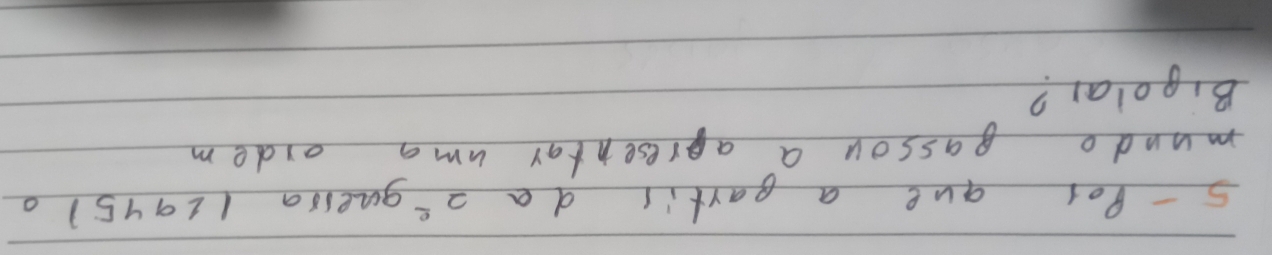 5 - Por que a partir da 2ª guerra (1945) o
mundo passou a apresentar uma ordem
Bipolar?